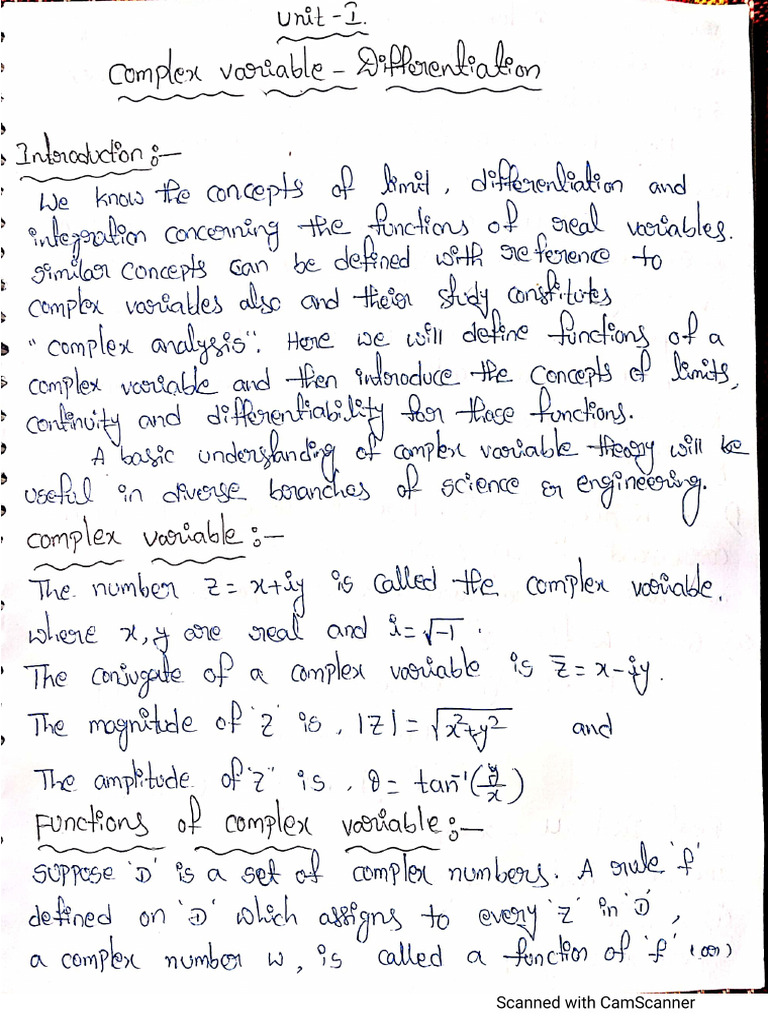 Unit - I.
Complex variable - Differentiation
Introduction :-
We know the concepts of limit, differentiation and
integration concerning the functions of real variables.
similar concepts can be defined with reference to
complex variables also and their study constitutes
"complex analysis". Here we will define functions of a
complex variable and then introduce the concepts of limits,
continuity and differentiability for those functions.
A basic understanding of complex variable theory will be
useful in diverse branches of science & engineering.
complex variable :-
The number z = x+iy is called the complex variable.
where x, y are real and i = √-1.
The conjugate of a complex variable is z̅ = x-iy.
The magnitude of 'z' is, |z| = √x²+y² and
The amplitude of 'z' is, θ = tan⁻¹(y/x)
Functions of complex variable :-
suppose 'D' is a set of complex numbers. A rule 'f'
defined on 'D' which assigns to every 'z' in 'D',
a complex number w, is called a function of 'f' (or)
Scanned with CamScanner